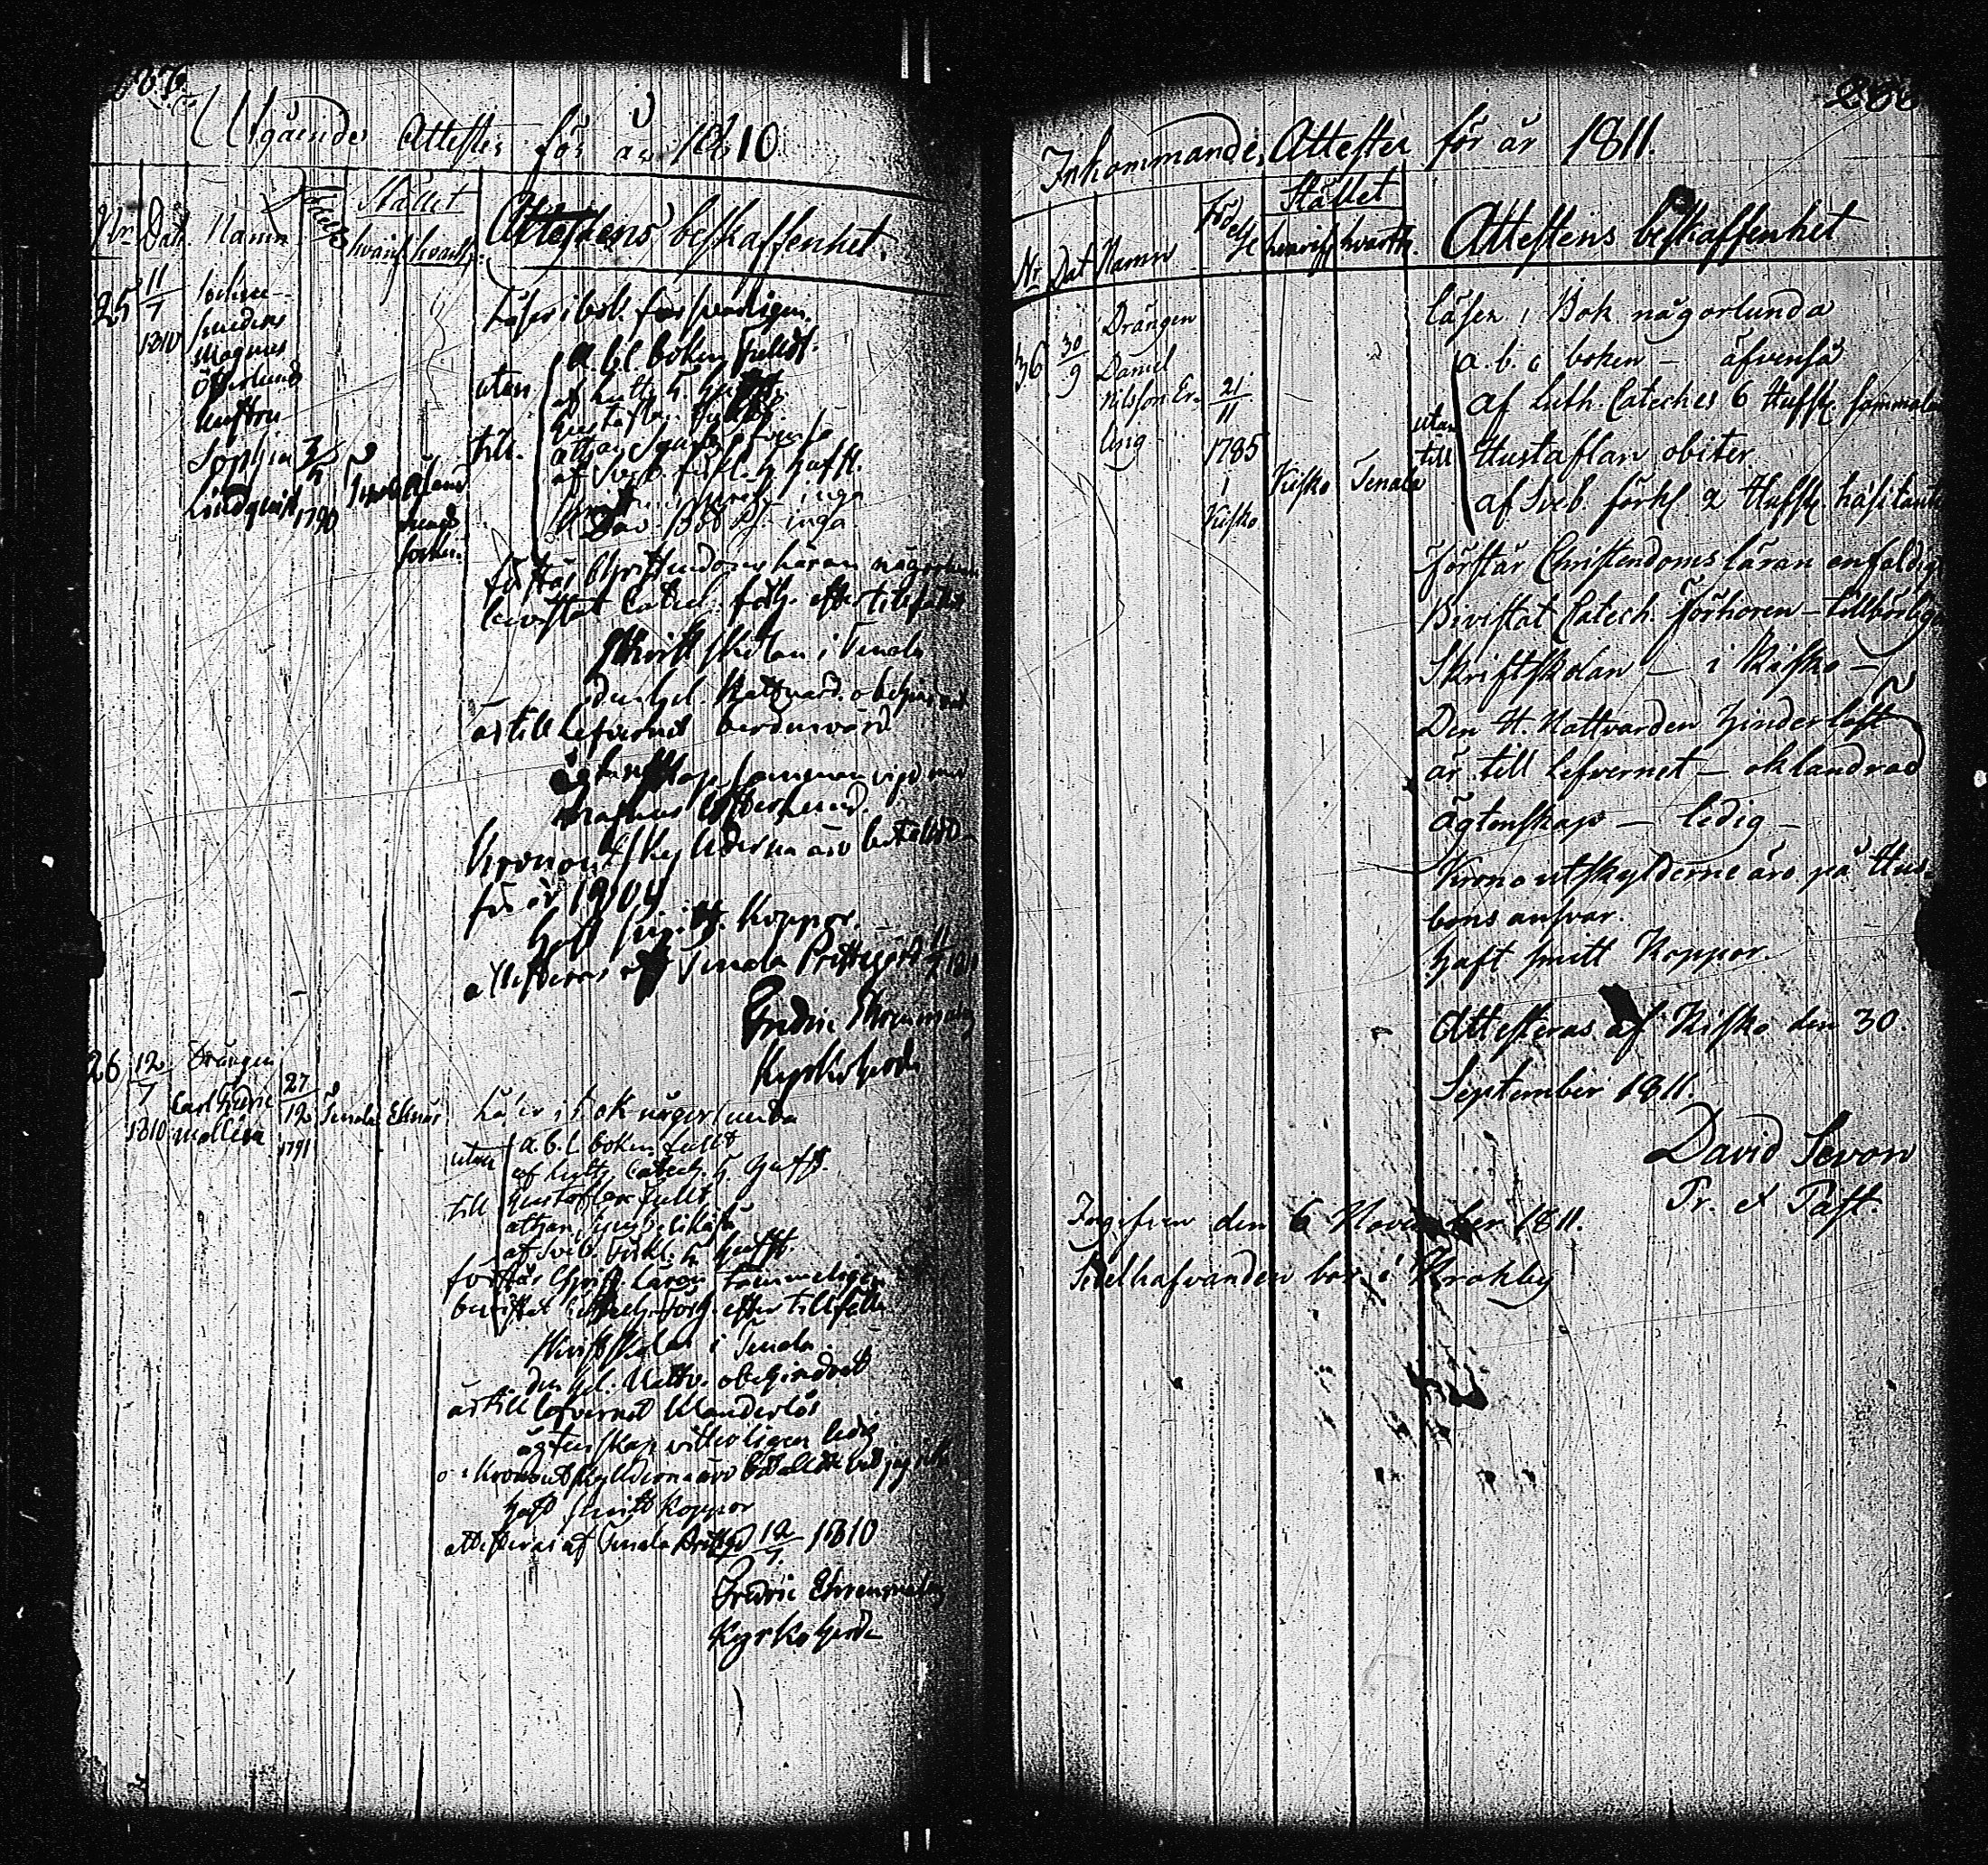 Utgående Attester för år 1810
Nr Dat. Namn Födelse Stället
hvarif. hvarth. Attestens beskaffenhet.
25 11/7 1810
Socknesmedens
Magnus
Österlund
hustru
Sophia 3/5
Lindquist 1790 Tenala
socken.
Läser i bok försvarligen.
utan till.
a. b. c boken fulldt.
af Luth. 5 Hufst.
Hustaflan
af Sveb. förkl. 5 Hufst.
inga
Dav. Bot Ps. inga
förstår Christendoms läran någorlunda
bevistat Catech. förh. efter tillfälle
Skriftskolan i Tenala
den Hel. Nattvard. obehindrat
är till lefvernet berömvärd
ägtenskap sammanvigd med
Magnus Österlund.
Kronoutskylderna äro betallde
för år 1809
haft Koppor.
attesteras af Tenala Prestegård 11/7 1810
Fredric Ehrenmalm
Kyrkoherde
26 12/7 1810 Drängen
Carl Hedric
Mollera 27/12 1791 Tenala Ekenäs
Läser i bok någorlunda
utan till
a. b. c boken fullt
af Luth. Catech. 5 Hufst.
Hustaflan fullt
athan. Symb. likaså
af Sveb. förkl. 5 Hufst.
förstår Christ. Läran
bevistat Catech. förh. efter tillfälle
Skriftskolan i Tenala
den Hel. Nattv. obehindrat
är till lefvernet klanderlös
ägtenskap vitterligen ledig
Kronoutskylderna äro betallde
haft Smitt Koppor
attesteras af Tenala Prestgd 12/7 1810
Fredric Ehrenmalm
Kyrkoherde
Inkommande Attester för år 1811.
Nr Dat Namn Födelse Stället
hvarif hvarth. Attestens beskaffenhet
36 30/9 Drängen
Daniel
Nilsson Er-
ling 21/11
1785
i
Kisko Kisko Tenala
läser i Bok någorlunda
utan till
a. b. c boken — äfvenså
af Luth. Cateches 6 Hufst. sammaled
Hustaflan obiter
af Sveb. förkl. 2 Hufst. häsitante
Förstår Christendoms läran enfaldigt
Bivistat Catech. Förhören — tillbörligt
Skriftskolan — i Kisko —
Den H. Nattvarden hinderlöst
är till Lefvernet — oklandrad
ägtenskap — ledig —
Kronoutskylderne äro på Hus-
bons ansvar.
haft smitt Koppor.
Attesteras af Kisko den 30.
September 1811.
David Sevon
Pr. et Past.
Ingifven den 6 November 1811.
Sedelhafvanden bor i Krokby